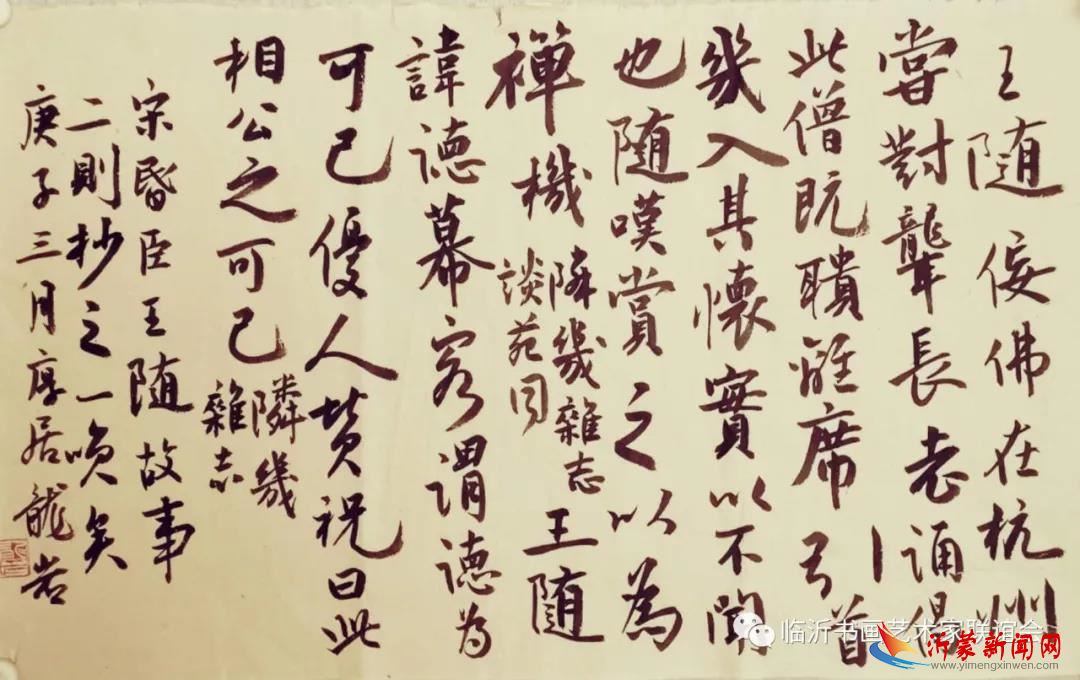 王随佞佛在杭州
嘗對聾長老誦偈
此僧既聵離席引首
幾入其懷實以不聞
也随嘆賞之以為
禪機
隣幾雜志
談苑同
王随
諱德幕客謂德為
可已優人贊祝曰此
相公之可已
隣幾
雜志
宋昏臣王随故事
二則抄之一矣
庚子三月居龍岩
临沂书画艺术家联谊会
沂蒙新闻网
www.yimengxinwen.com